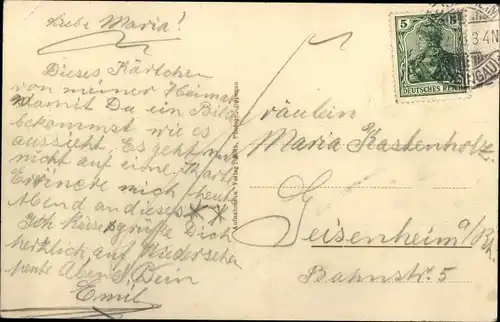 Liebe Maria!
Dieses Kärtchen
von meiner Heimat
damit Du ein Bild
bekommst wie es
aussieht. Es geht mir
nicht auf eine Karte
Erinnere mich heute
Abend an dieses
Ich küsse grüße Dich
herzlich auf Wiedersehen
heute Abend Dein
Emil
5 5
DEUTSCHES REICH
Fräulein
Maria Kastenholz
Geisenheim a/Rh.
Bahnstr. 5